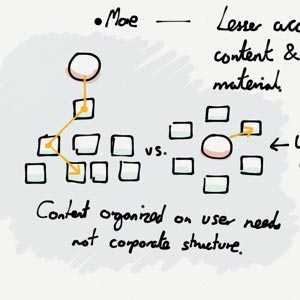 • Moe — Lesser
content &
material.
vs.
←
Content organized on user needs
not corporate structure.